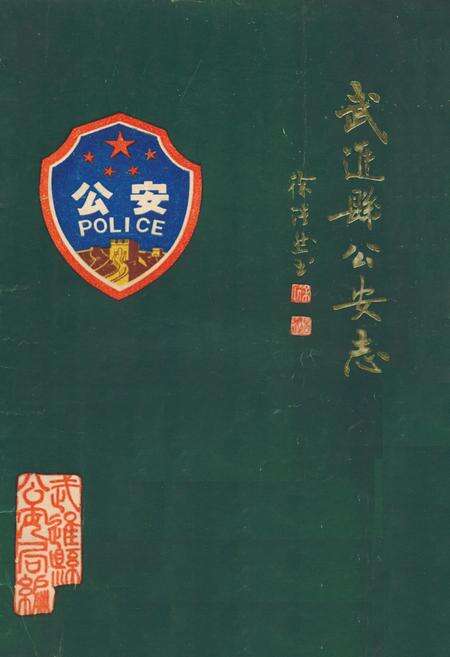 武進縣公安志
公安
POLICE
武進縣
公安局編